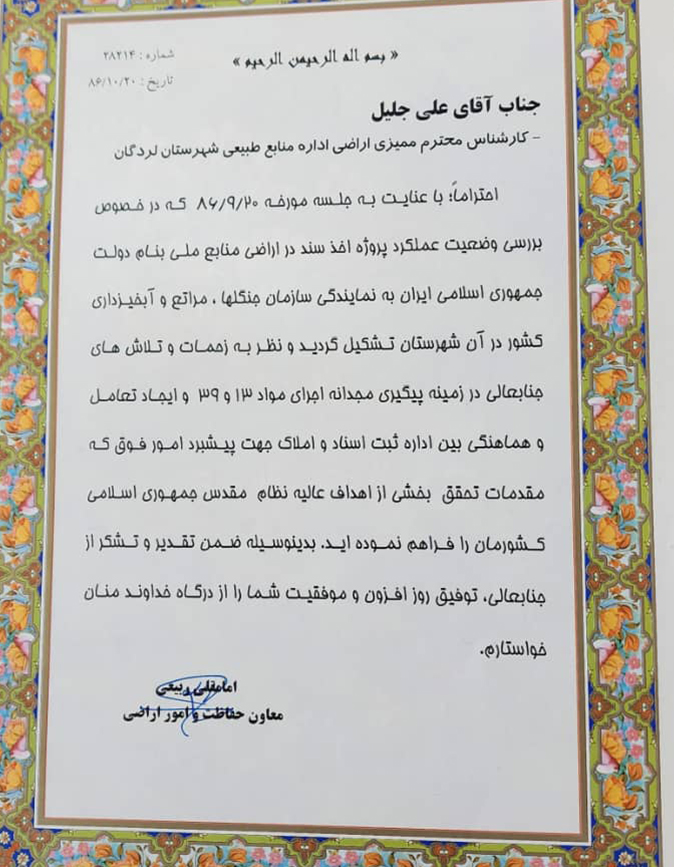 « بسم اله الرحیمن الرحیم »
شماره : ۲۸۲۱۴
تاریخ : ۸۶/۱۰/۲۰
جناب آقای علی جلیل
- کارشناس محترم ممیزی اراضی اداره منابع طبیعی شهرستان لردگان
احتراماً؛ با عنایت به جلسه مورخه ۸۶/۹/۲۰ که در خصوص
بررسی وضعیت عملکرد پروژه اخذ سند در اراضی منابع ملی بنام دولت
جمهوری اسلامی ایران به نمایندگی سازمان جنگلها ، مراتع و آبخیزداری
کشور در آن شهرستان تشکیل گردید و نظر به زحمات و تلاش های
جنابعالی در زمینه پیگیری مجدانه اجرای مواد ۱۳ و ۳۹ و ایجاد تعامل
و هماهنگی بین اداره ثبت اسناد و املاک جهت پیشبرد امور فوق که
مقدمات تحقق بخشی از اهداف عالیه نظام مقدس جمهوری اسلامی
کشورمان را فراهم نموده اید. بدینوسیله ضمن تقدیر و تشکر از
جنابعالی، توفیق روز افزون و موفقیت شما را از درگاه خداوند منان
خواستارم.
امامقلی ربیعی
معاون حفاظت و امور اراضی